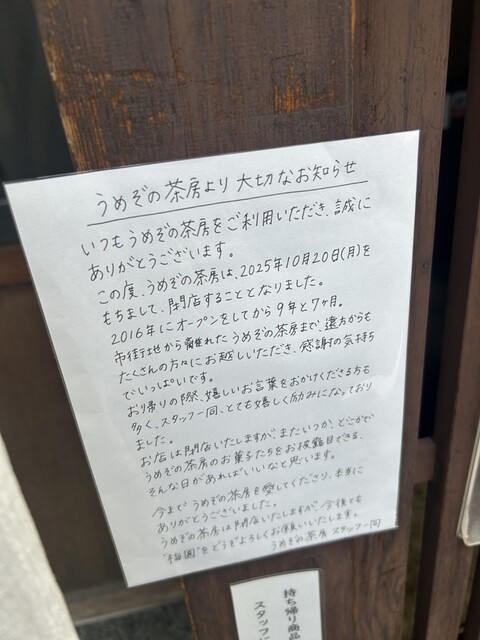 うめぞの茶房より 大切なお知らせ
いつもうめぞの茶房をご利用いただき、誠に
ありがとうございます。
この度、うめぞの茶房は、2025年10月20日(月)を
もちまして、閉店することとなりました。
2016年にオープンをしてから9年と7ヶ月。
市街地から離れたうめぞの茶房まで、遠方からも
たくさんの方々にお越しいただき、感謝の気持ち
でいっぱいです。
お帰りの際、嬉しいお言葉をおかけくださる方も
多く、スタッフ一同、とても嬉しく励みになっており
ました。
お店は閉店いたしますが、またいつか、どこかで
うめぞの茶房のお菓子たちをお披露目できる、
そんな日があればいいなと思います。
今まで うめぞの茶房を愛してくださり、本当に
ありがとうございました。
うめぞの茶房は閉店いたしますが、今後とも
"梅園"をどうぞよろしくお願いいたします。
うめぞの茶房 スタッフ一同
持ち帰り商品
スタッフに